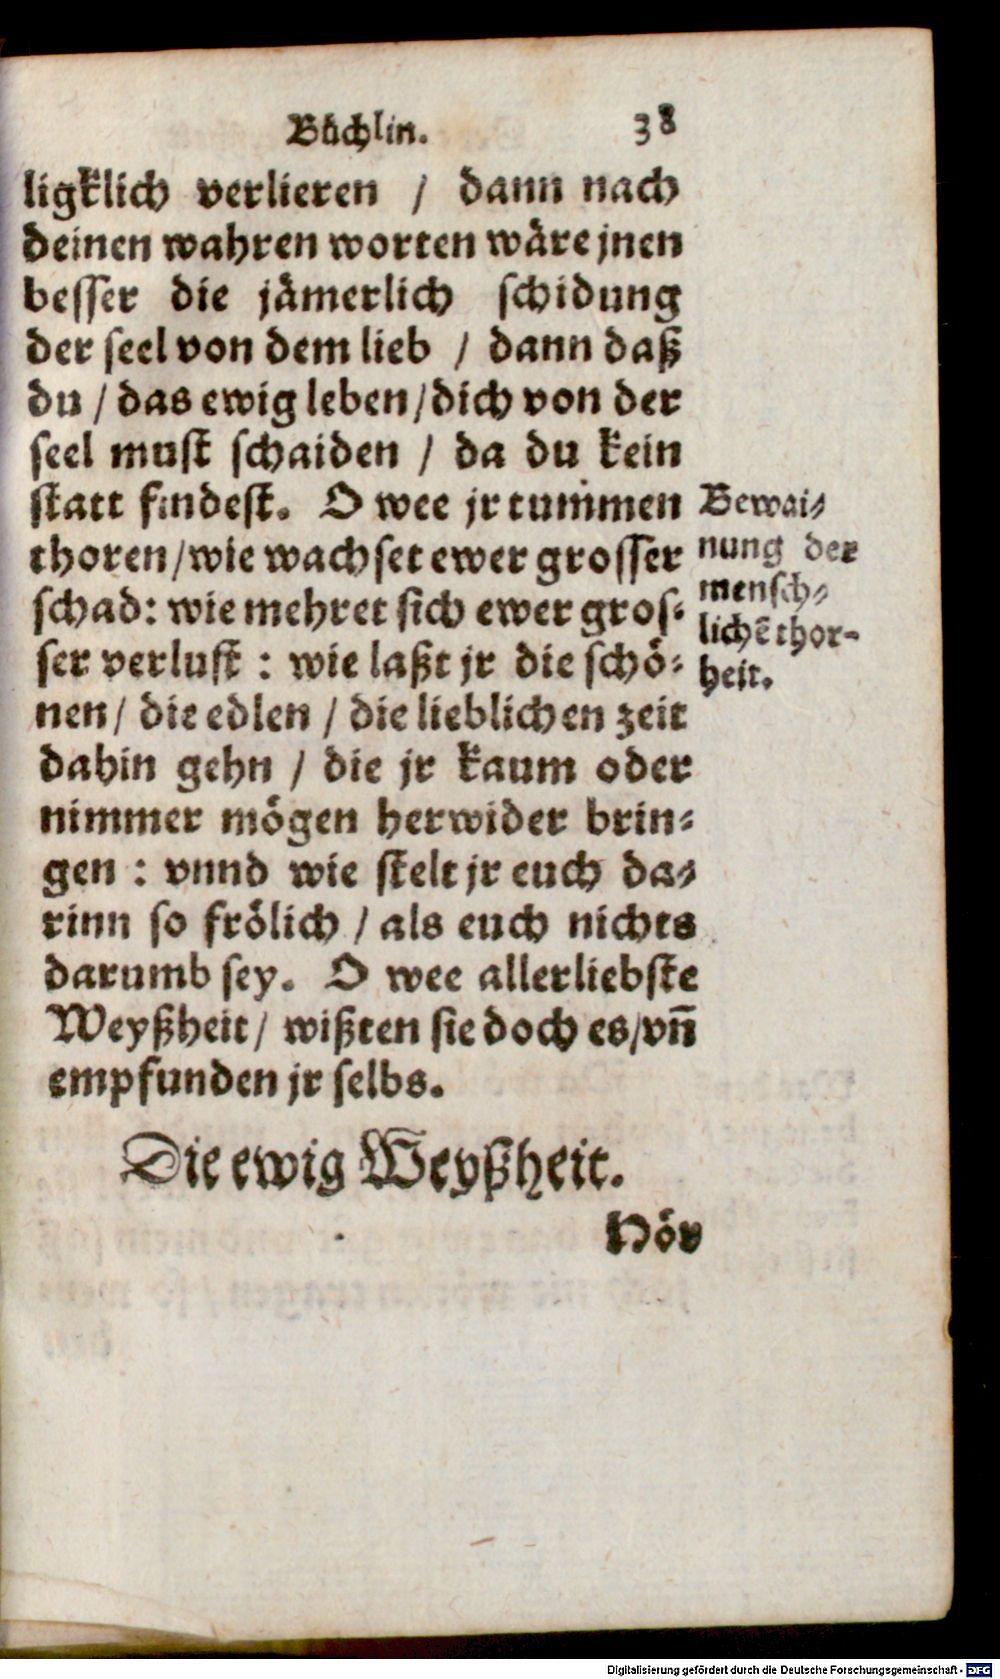 Bůchlin. 38
ligklich verlieren / dann nach
deinen wahren worten wäre jnen
besser die jämerlich schidung
der seel von dem lieb / dann daß
du / das ewig leben / dich von der
seel must schaiden / da du kein
statt findest. O wee jr tummen
thoren / wie wachset ewer grosser
schad: wie mehret sich ewer gros-
ser verlust : wie laßt jr die schö-
nen / die edlen / die lieblichen zeit
dahin gehn / die jr kaum oder
nimmer mögen herwider brin-
gen : vnnd wie stelt jr euch da-
rinn so frölich / als euch nichts
darumb sey. O wee allerliebste
Weyßheit / wißten sie doch es / vñ
empfunden jr selbs.
Bewai-
nung der
mensch-
lichẽ thor-
heit.
Die ewig Weyßheit.
Hör
Digitalisierung gefördert durch die Deutsche Forschungsgemeinschaft - DFG